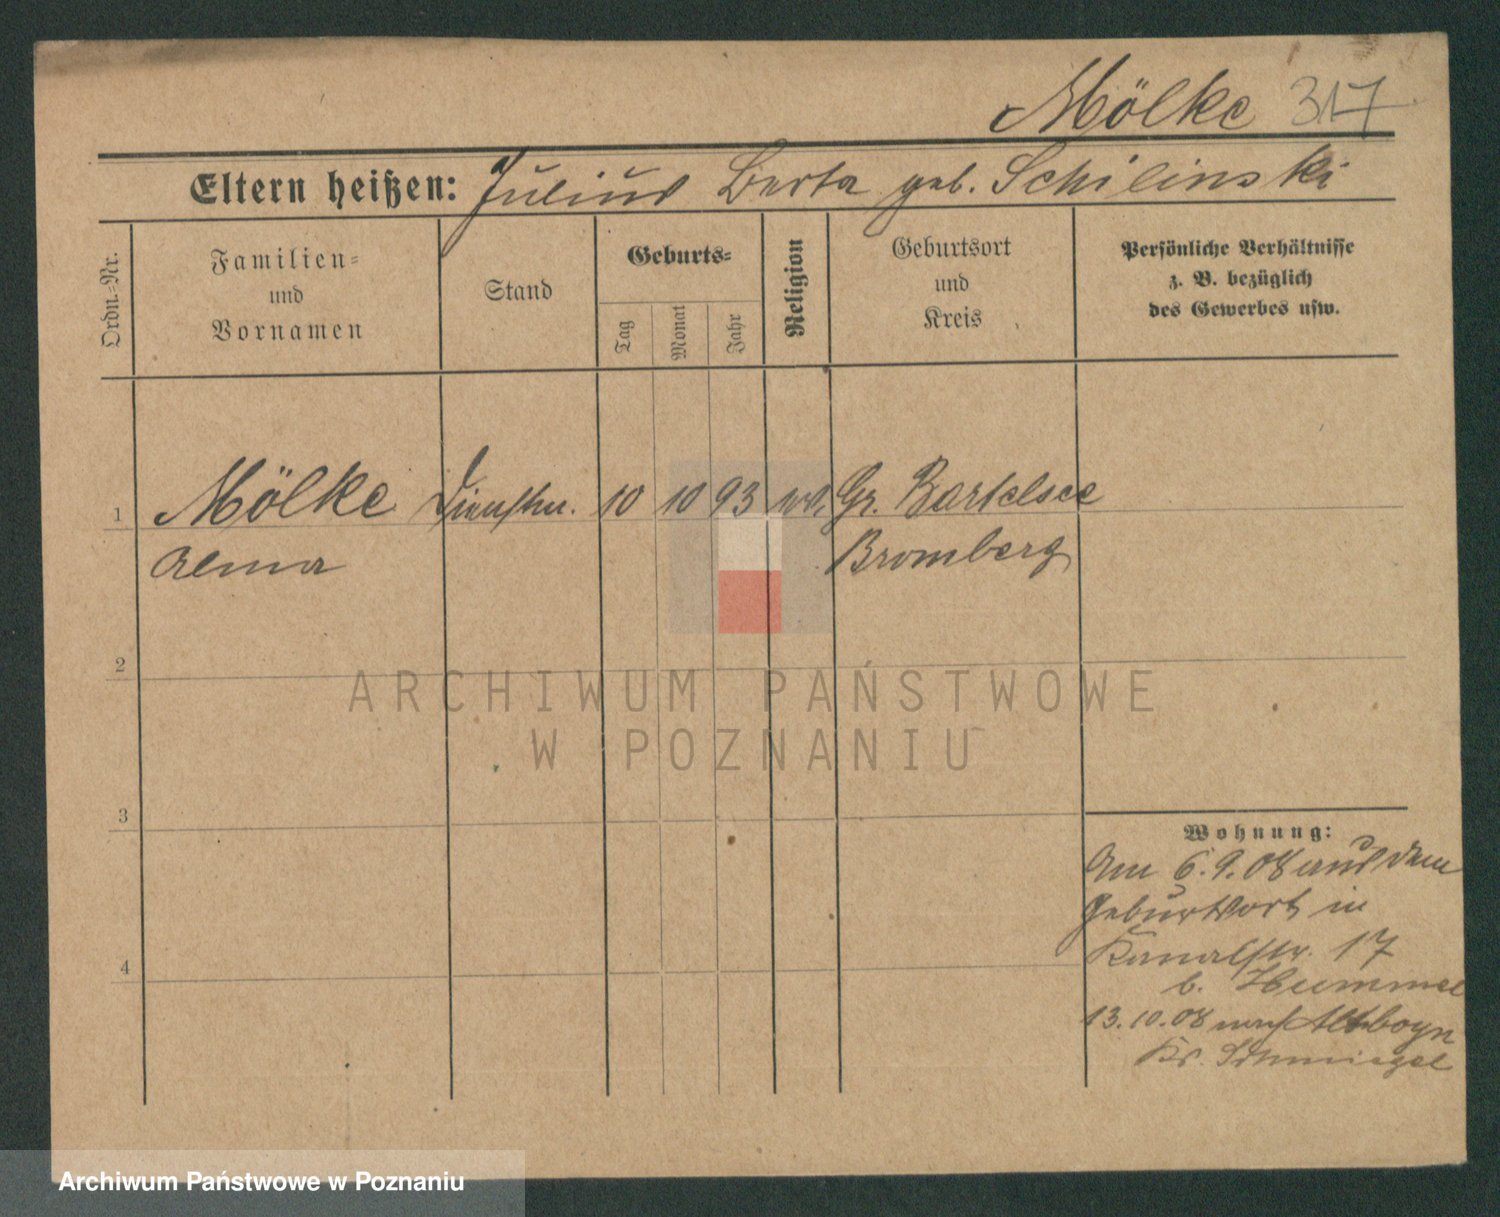 Mölke 317
Eltern heißen: Julius Berta geb. Schilinski
Ordn.-Nr.
Familien-
und
Vornamen
Stand
Geburts-
Tag
Monat
Jahr
Religion
Geburtsort
und
Kreis
Persönliche Verhältnisse
z. B. bezüglich
des Gewerbes usw.
1 Mölke Dienstm. 10 10 93 Gr. Bartelsee
Alma Bromberg
2
3
4
Wohnung:
Am 6.9.08 aus dem
Geburtsort in
Kanalstr. 17
b. Hummel
13.10.08 nach Altboyn
Kr. Schmiegel
ARCHIWUM PAŃSTWOWE
W POZNANIU
Archiwum Państwowe w Poznaniu